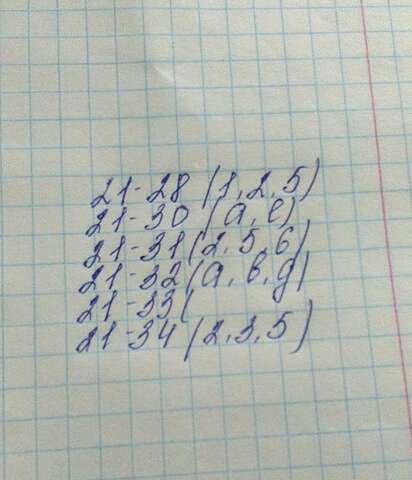 21-28 (1, 2, 5)
21-30 (а, е)
21-31 (2, 5, 6)
21-32 (а, в, д)
21-33 (
21-34 (2, 3, 5)